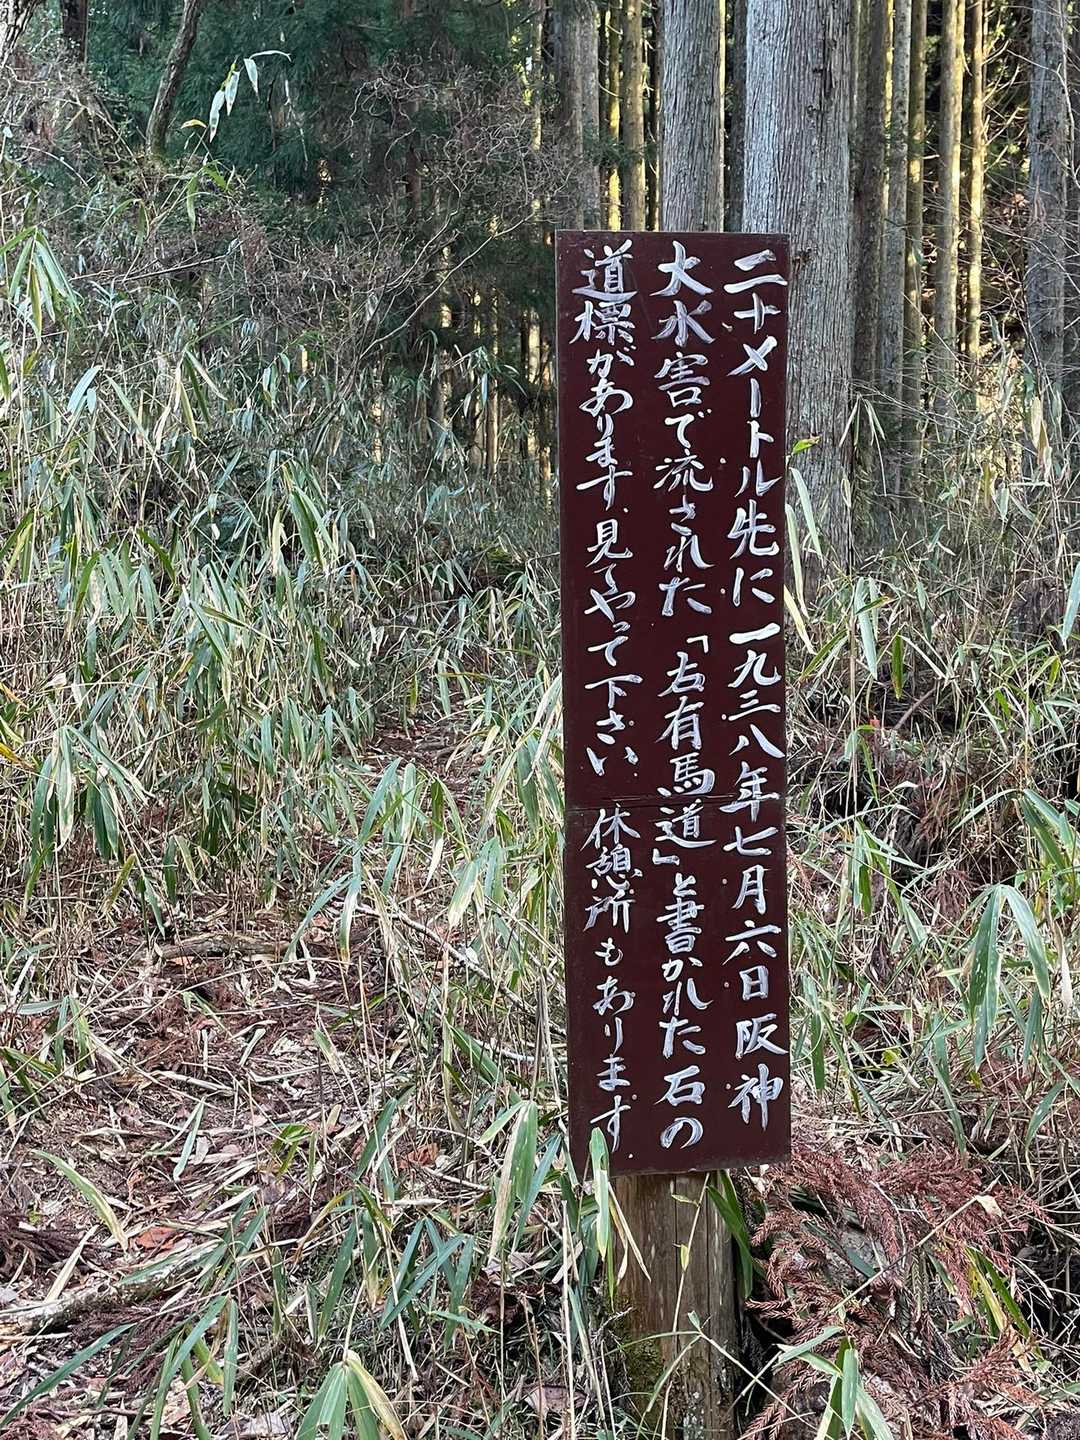 二十メートル先に一九三八年七月六日阪神
大水害で流された「右有馬道」と書かれた石の
道標があります、見てやって下さい 休憩所もあります.